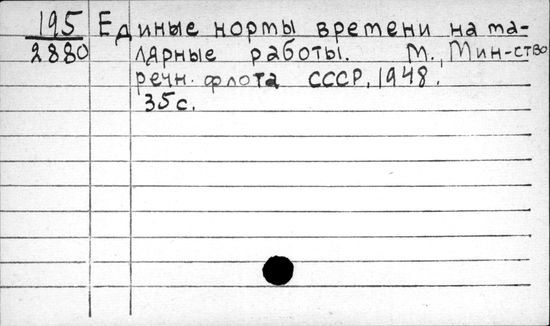 195 Единые нормы времени на та-
2880 лярные работы. М., Мин-ство
речн. флота СССР, 1948.
35 с.